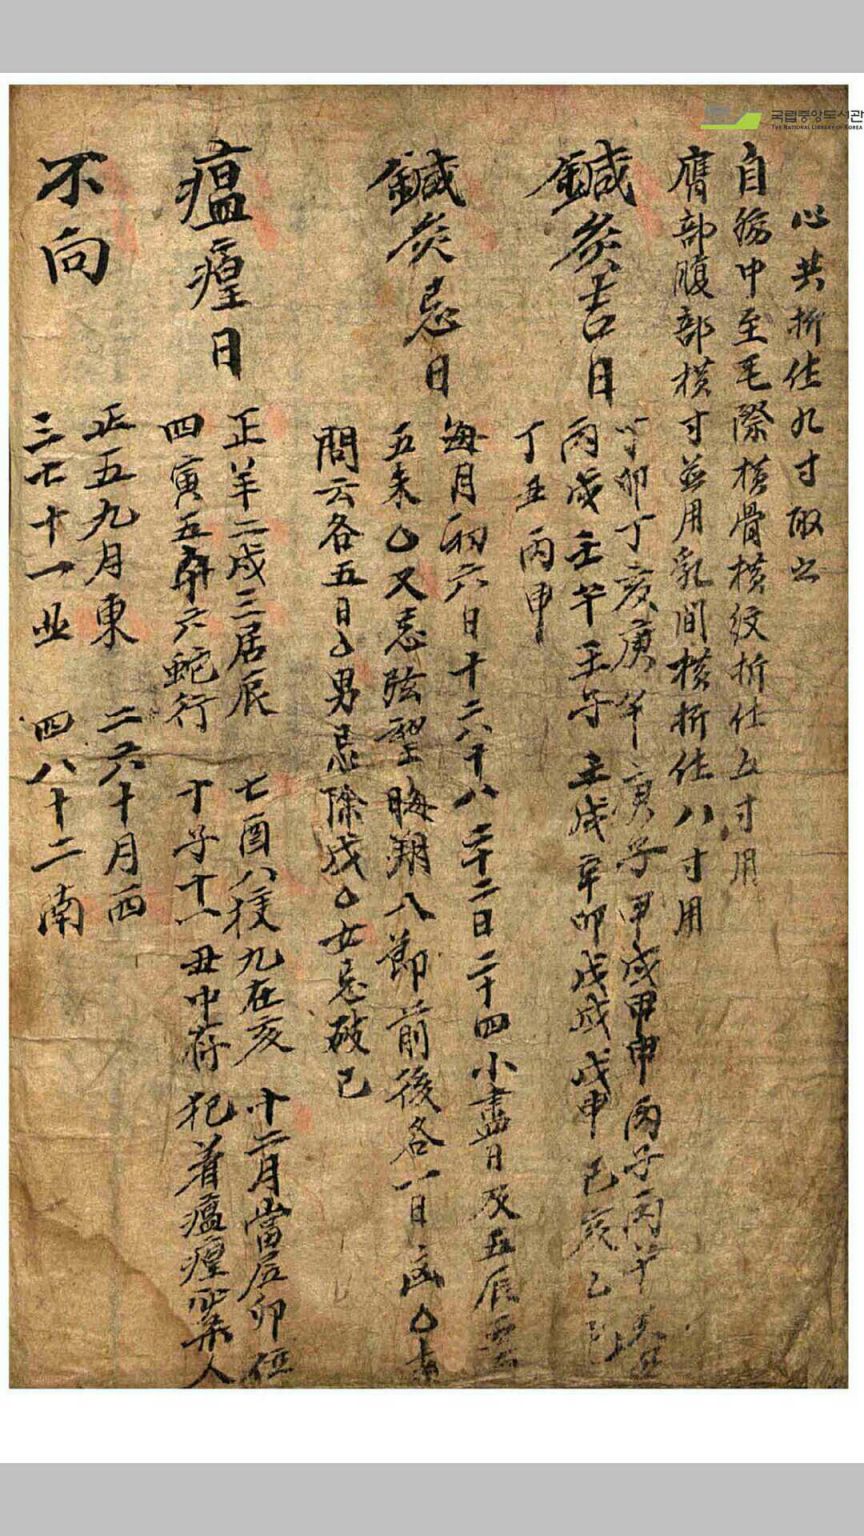 국립중앙도서관
THE NATIONAL LIBRARY OF KOREA
心共折作九寸取之
自臍中至毛際橫骨橫紋折作五寸用
膺部腹部橫寸並用乳間橫折作八寸用
鍼灸吉日
丁卯丁亥庚午庚子甲戌甲申丙子丙午
丙戌壬午壬子壬戌辛卯戊戌戊申己亥
丁丑丙申
鍼灸忌日
每月初六日十六十八二十二日二十四小盡日及五辰
五未又忌弦望晦朔八節前後各一日
問云各五日男忌除戌女忌破巳
瘟㾮日
正羊二戌三居辰 七酉八 九在亥 十二月當居卯位
四寅五 六蛇行 十子十一丑中存 犯着瘟㾮 人
不向
正五九月東 二六十月西
三七十一北 四八十二南